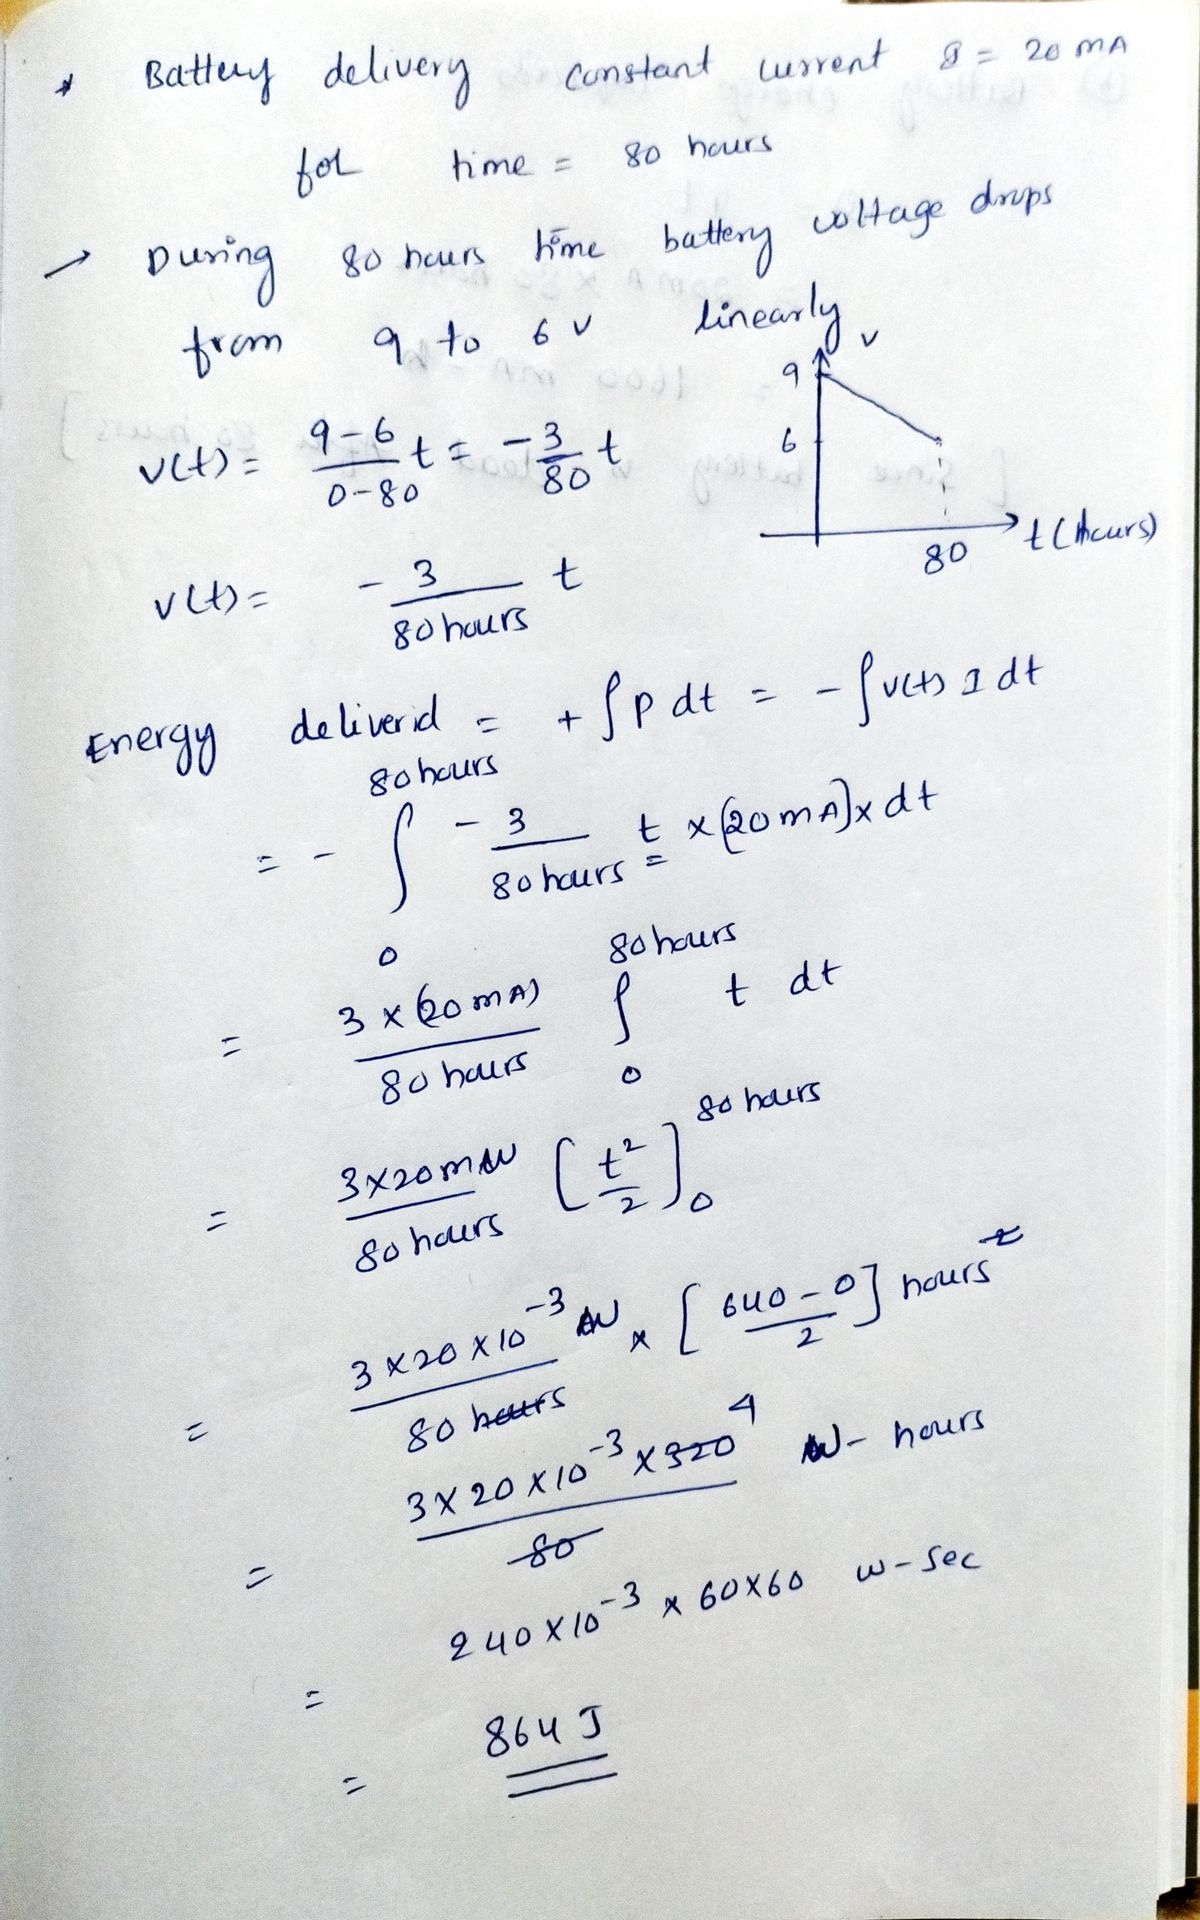 * Battery delivery constant current I = 20 mA
for time = 80 hours
→ During 80 hours time battery voltage drops
from 9 to 6 V linearly
V
9
6
80
t (Hours)
v(t) = (9-6)/(0-80) t = -3/80 t
v(t) = - 3/(80 hours) t
Energy deliverid = + ∫ P dt = - ∫ v(t) I dt
= - ∫_0^{80 hours} - 3/(80 hours) t × (20 mA) × dt
= 3 × (20 mA)/(80 hours) ∫_0^{80 hours} t dt
= 3×20 mW/(80 hours) [t²/2]_0^{80 hours}
= 3×20×10⁻³ W/(80 hours) × [(640-0)/2] hours²
= 3×20×10⁻³×320/80 4 W-hours
= 240×10⁻³ × 60×60 w-sec
= 864 J